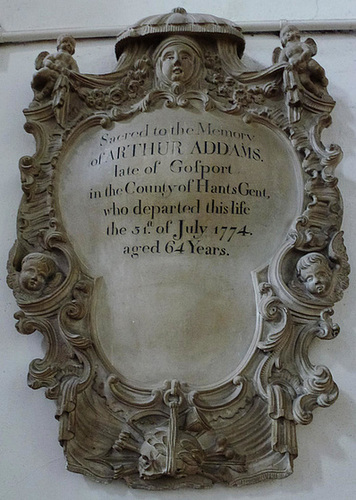 Sacred to the Memory
of ARTHUR ADDAMS,
late of Gosport
in the County of Hants Gent.
who departed this life
the 31st of July 1774.
aged 64 Years.